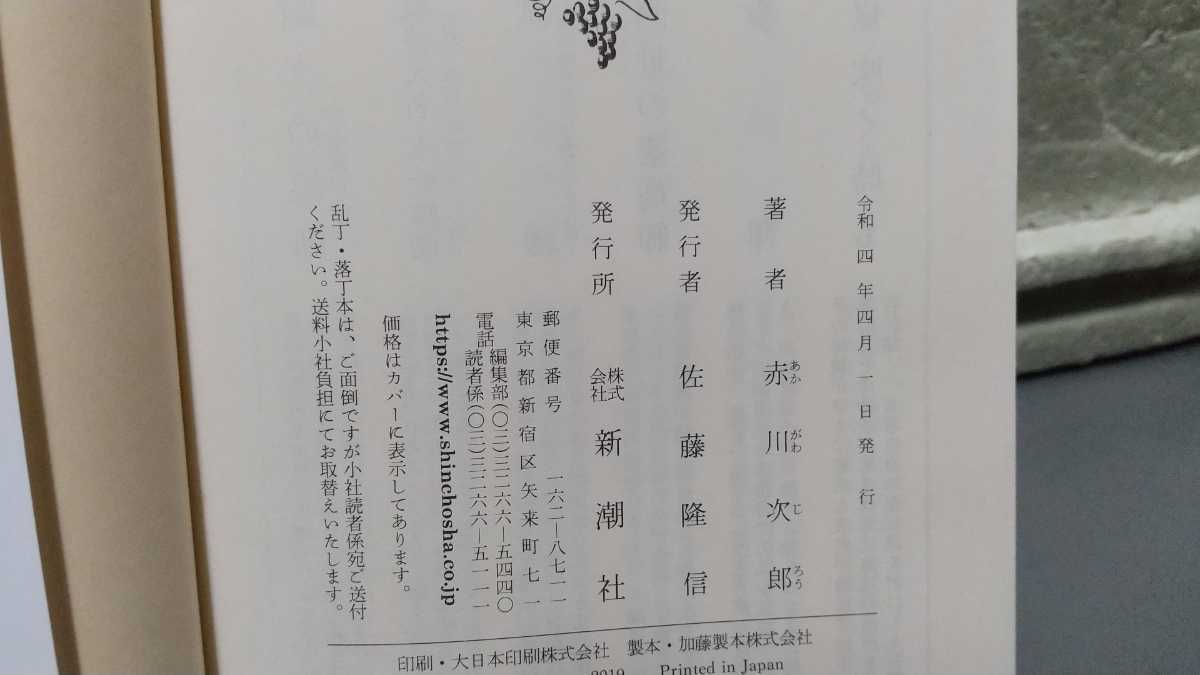 令和四年四月一日発行
著者 赤川次郎
あかがわじろう
発行者 佐藤隆信
発行所 株式会社 新潮社
郵便番号 一六二―八七一一
東京都新宿区矢来町七一
電話 編集部(〇三)三二六六―五四四〇
読者係(〇三)三二六六―五一一一
https://www.shinchosha.co.jp
価格はカバーに表示してあります。
乱丁・落丁本は、ご面倒ですが小社読者係宛ご送付
ください。送料小社負担にてお取替えいたします。
印刷・大日本印刷株式会社 製本・加藤製本株式会社
2019 Printed in Japan